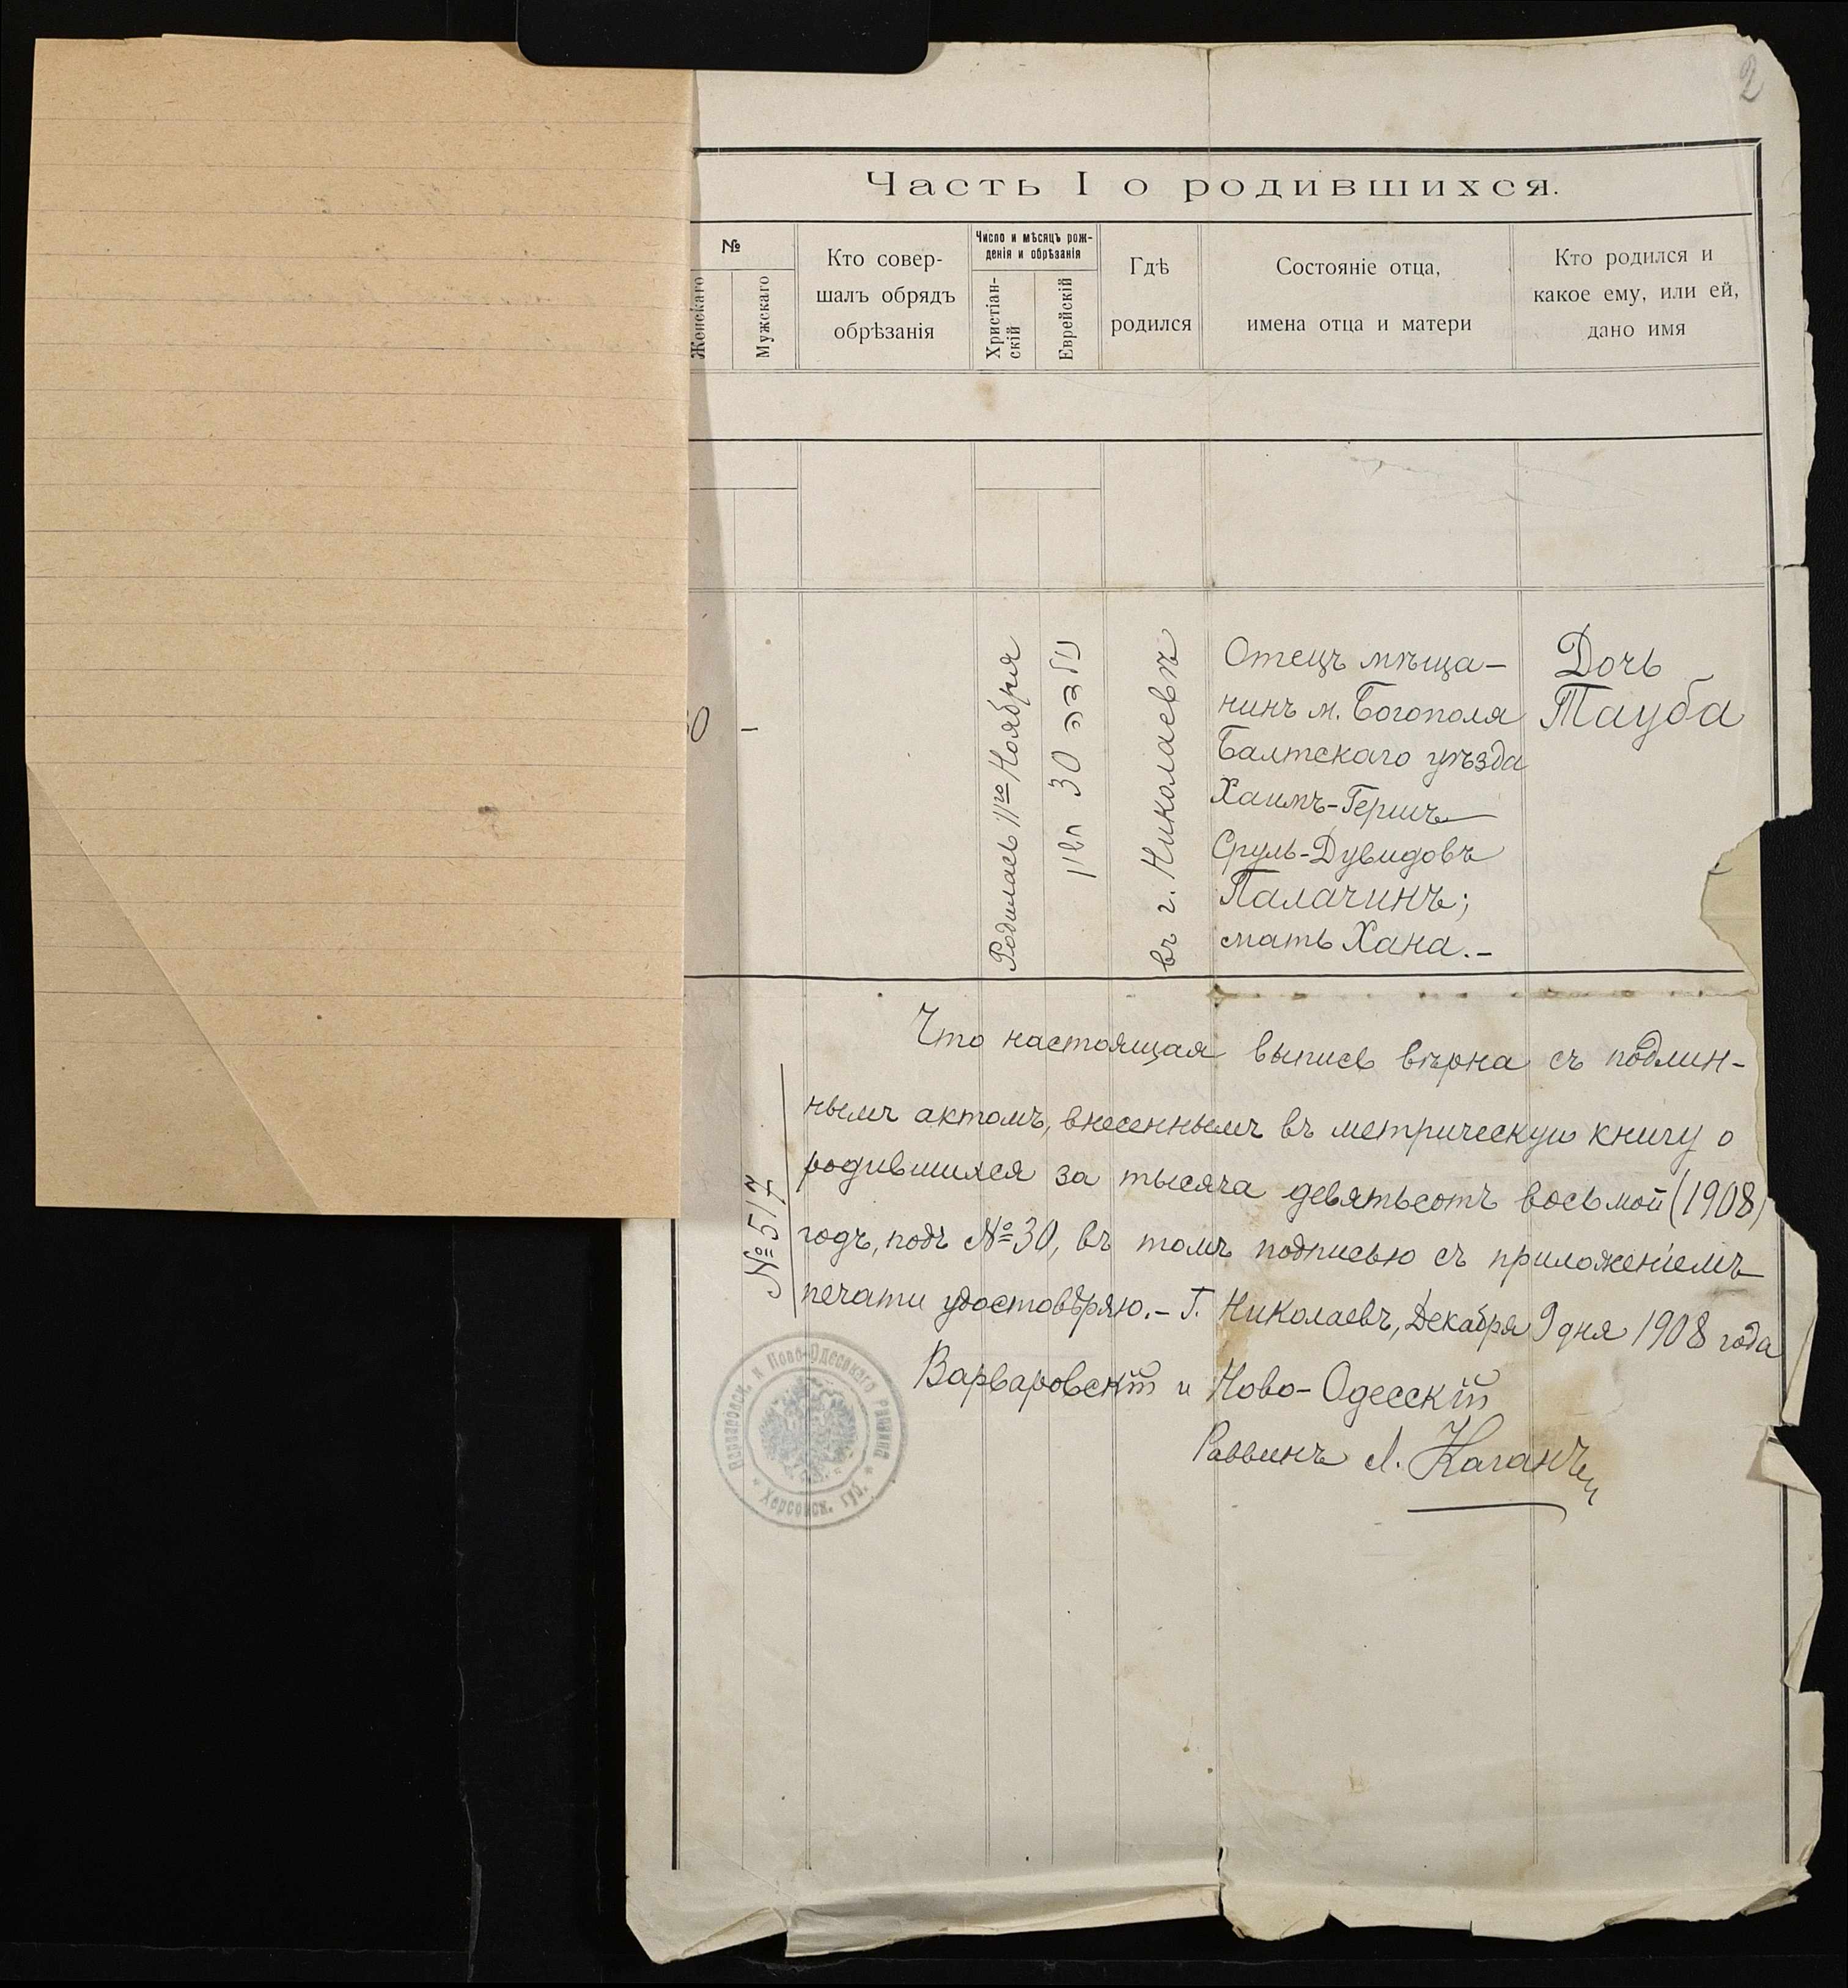 2
Часть I о родившихся.
№
Женскаго
Мужскаго
Кто совер-
шалъ обрядъ
обрѣзанія
Число и мѣсяцъ рож-
денія и обрѣзанія
Христіан-
скій
Еврейскій
Гдѣ
родился
Состояніе отца,
имена отца и матери
Кто родился и
какое ему, или ей,
дано имя
0
–
Родилась 11го Ноября
30
въ г. Николаевѣ
Отецъ мѣща-
нинъ м. Богополя
Балтскаго уѣзда
Хаимъ-Гершъ
Сруль-Дувидовъ
Палачинъ;
мать Хана.-
Дочь
Тауба
Что настоящая выпись вѣрна съ подлин-
нымъ актомъ, внесеннымъ въ метрическую книгу о
родившихся за тысяча девятьсотъ восьмой (1908)
годъ, подъ №30, въ томъ подписью съ приложеніемъ
печати удостовѣряю.- Г. Николаевъ, Декабря 9 дня 1908 года
№ 517
Варваровскій и Ново-Одесскій
Раввинъ Л. Каганъ
Варваровск. и Ново-Одесскаго раввина
* Херсонск. губ. *